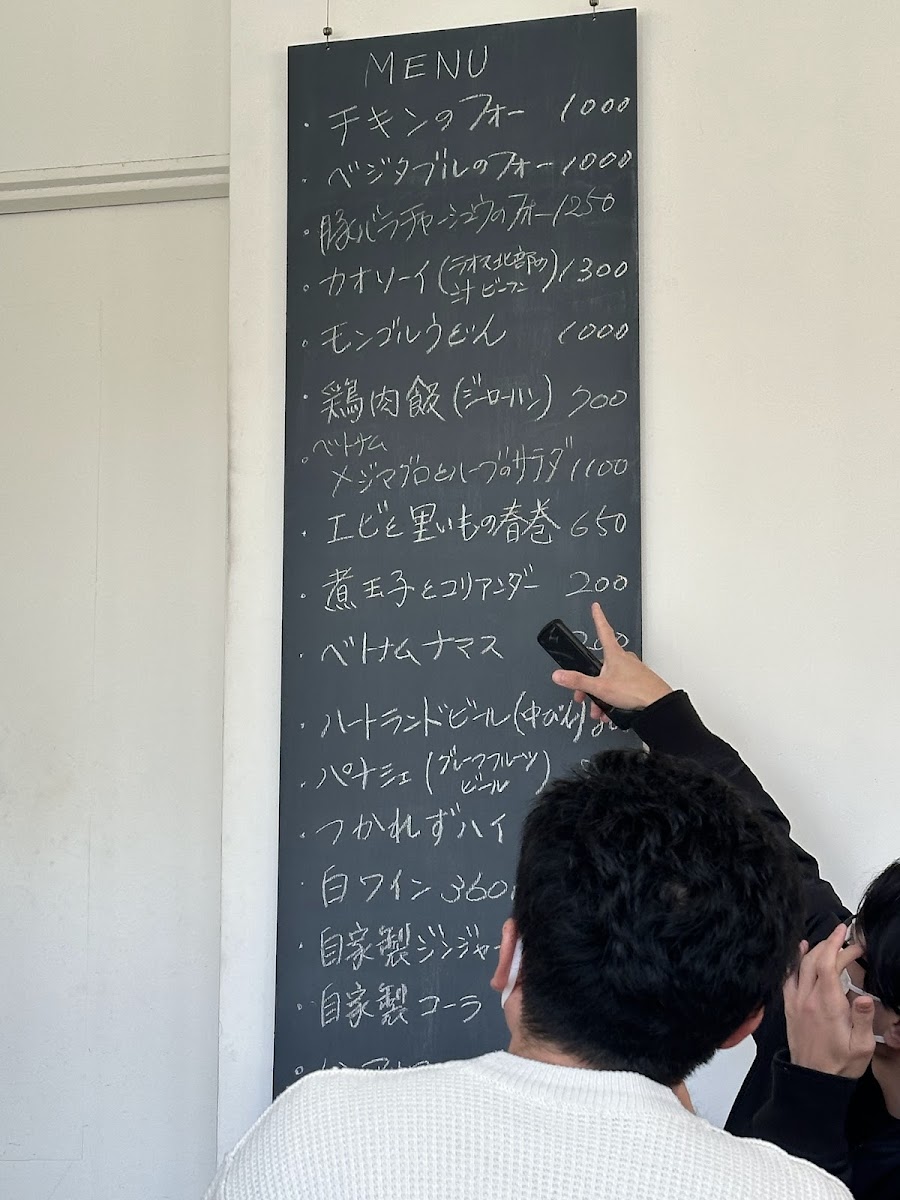 MENU
・チキンのフォー 1000
・ベジタブルのフォー 1000
・豚バラチャーシュウのフォー 1250
・カオソーイ(ラオス北部の汁ビーフン) 1300
・モンゴルうどん 1000
・鶏肉飯(ジーローハン) 700
・ベトナム
メジマグロとハーブのサラダ 1100
・エビと里いもの春巻 650
・煮玉子とコリアンダー 200
・ベトナムナマス 200
・ハートランドビール(中びん)
・パナシェ(グレープフルーツビール)
・つかれずハイ
・白ワイン 360
・自家製ジンジャー
・自家製コーラ